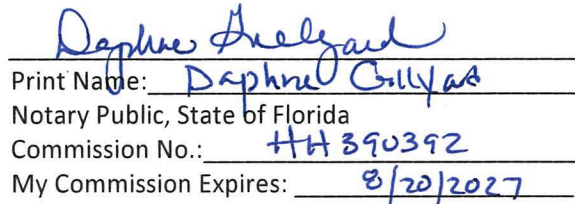 Daphne Gillyard
Print Name: Daphne Gillyard
Notary Public, State of Florida
Commission No.: HH 390392
My Commission Expires: 8/20/2027